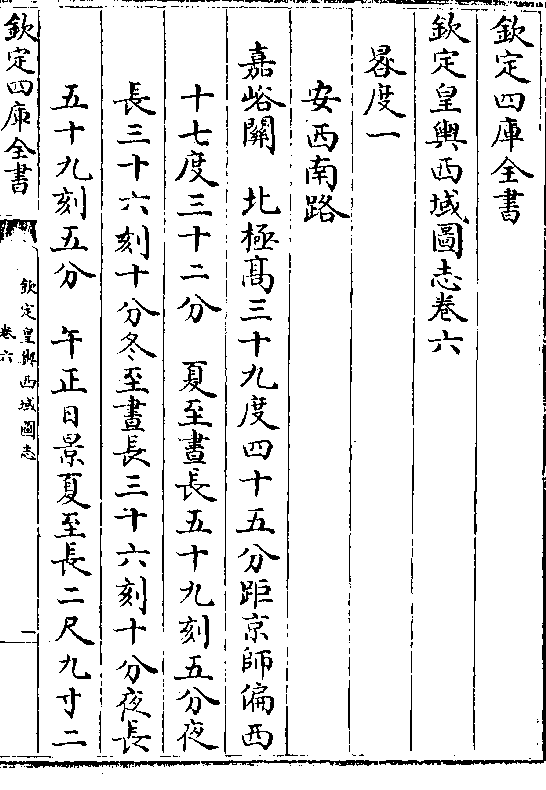 欽定四庫全書
欽定皇輿西域圖志卷六
晷度一
安西南路
嘉峪關　北極髙三十九度四十五分距京師偏西
十七度三十二分　夏至晝長五十九刻五分夜
長三十六刻十分冬至晝長三十六刻十分夜長
五十九刻五分　午正日景夏至長二尺九寸二
欽定四庫全書
欽定皇輿西域圖志
卷六
一